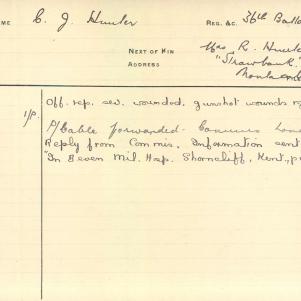 ME C. J. Hunter REG. &C. 36th Batta
NEXT OF KIN Mrs R. Hunt
ADDRESS "Strawbank"
Off. rep. sev. wounded, gunshot wounds
1/P. P/Cable forwarded.
Reply from Commis. Information sent
"In Bevan Mil. Hosp. Shorncliff, Kent.,